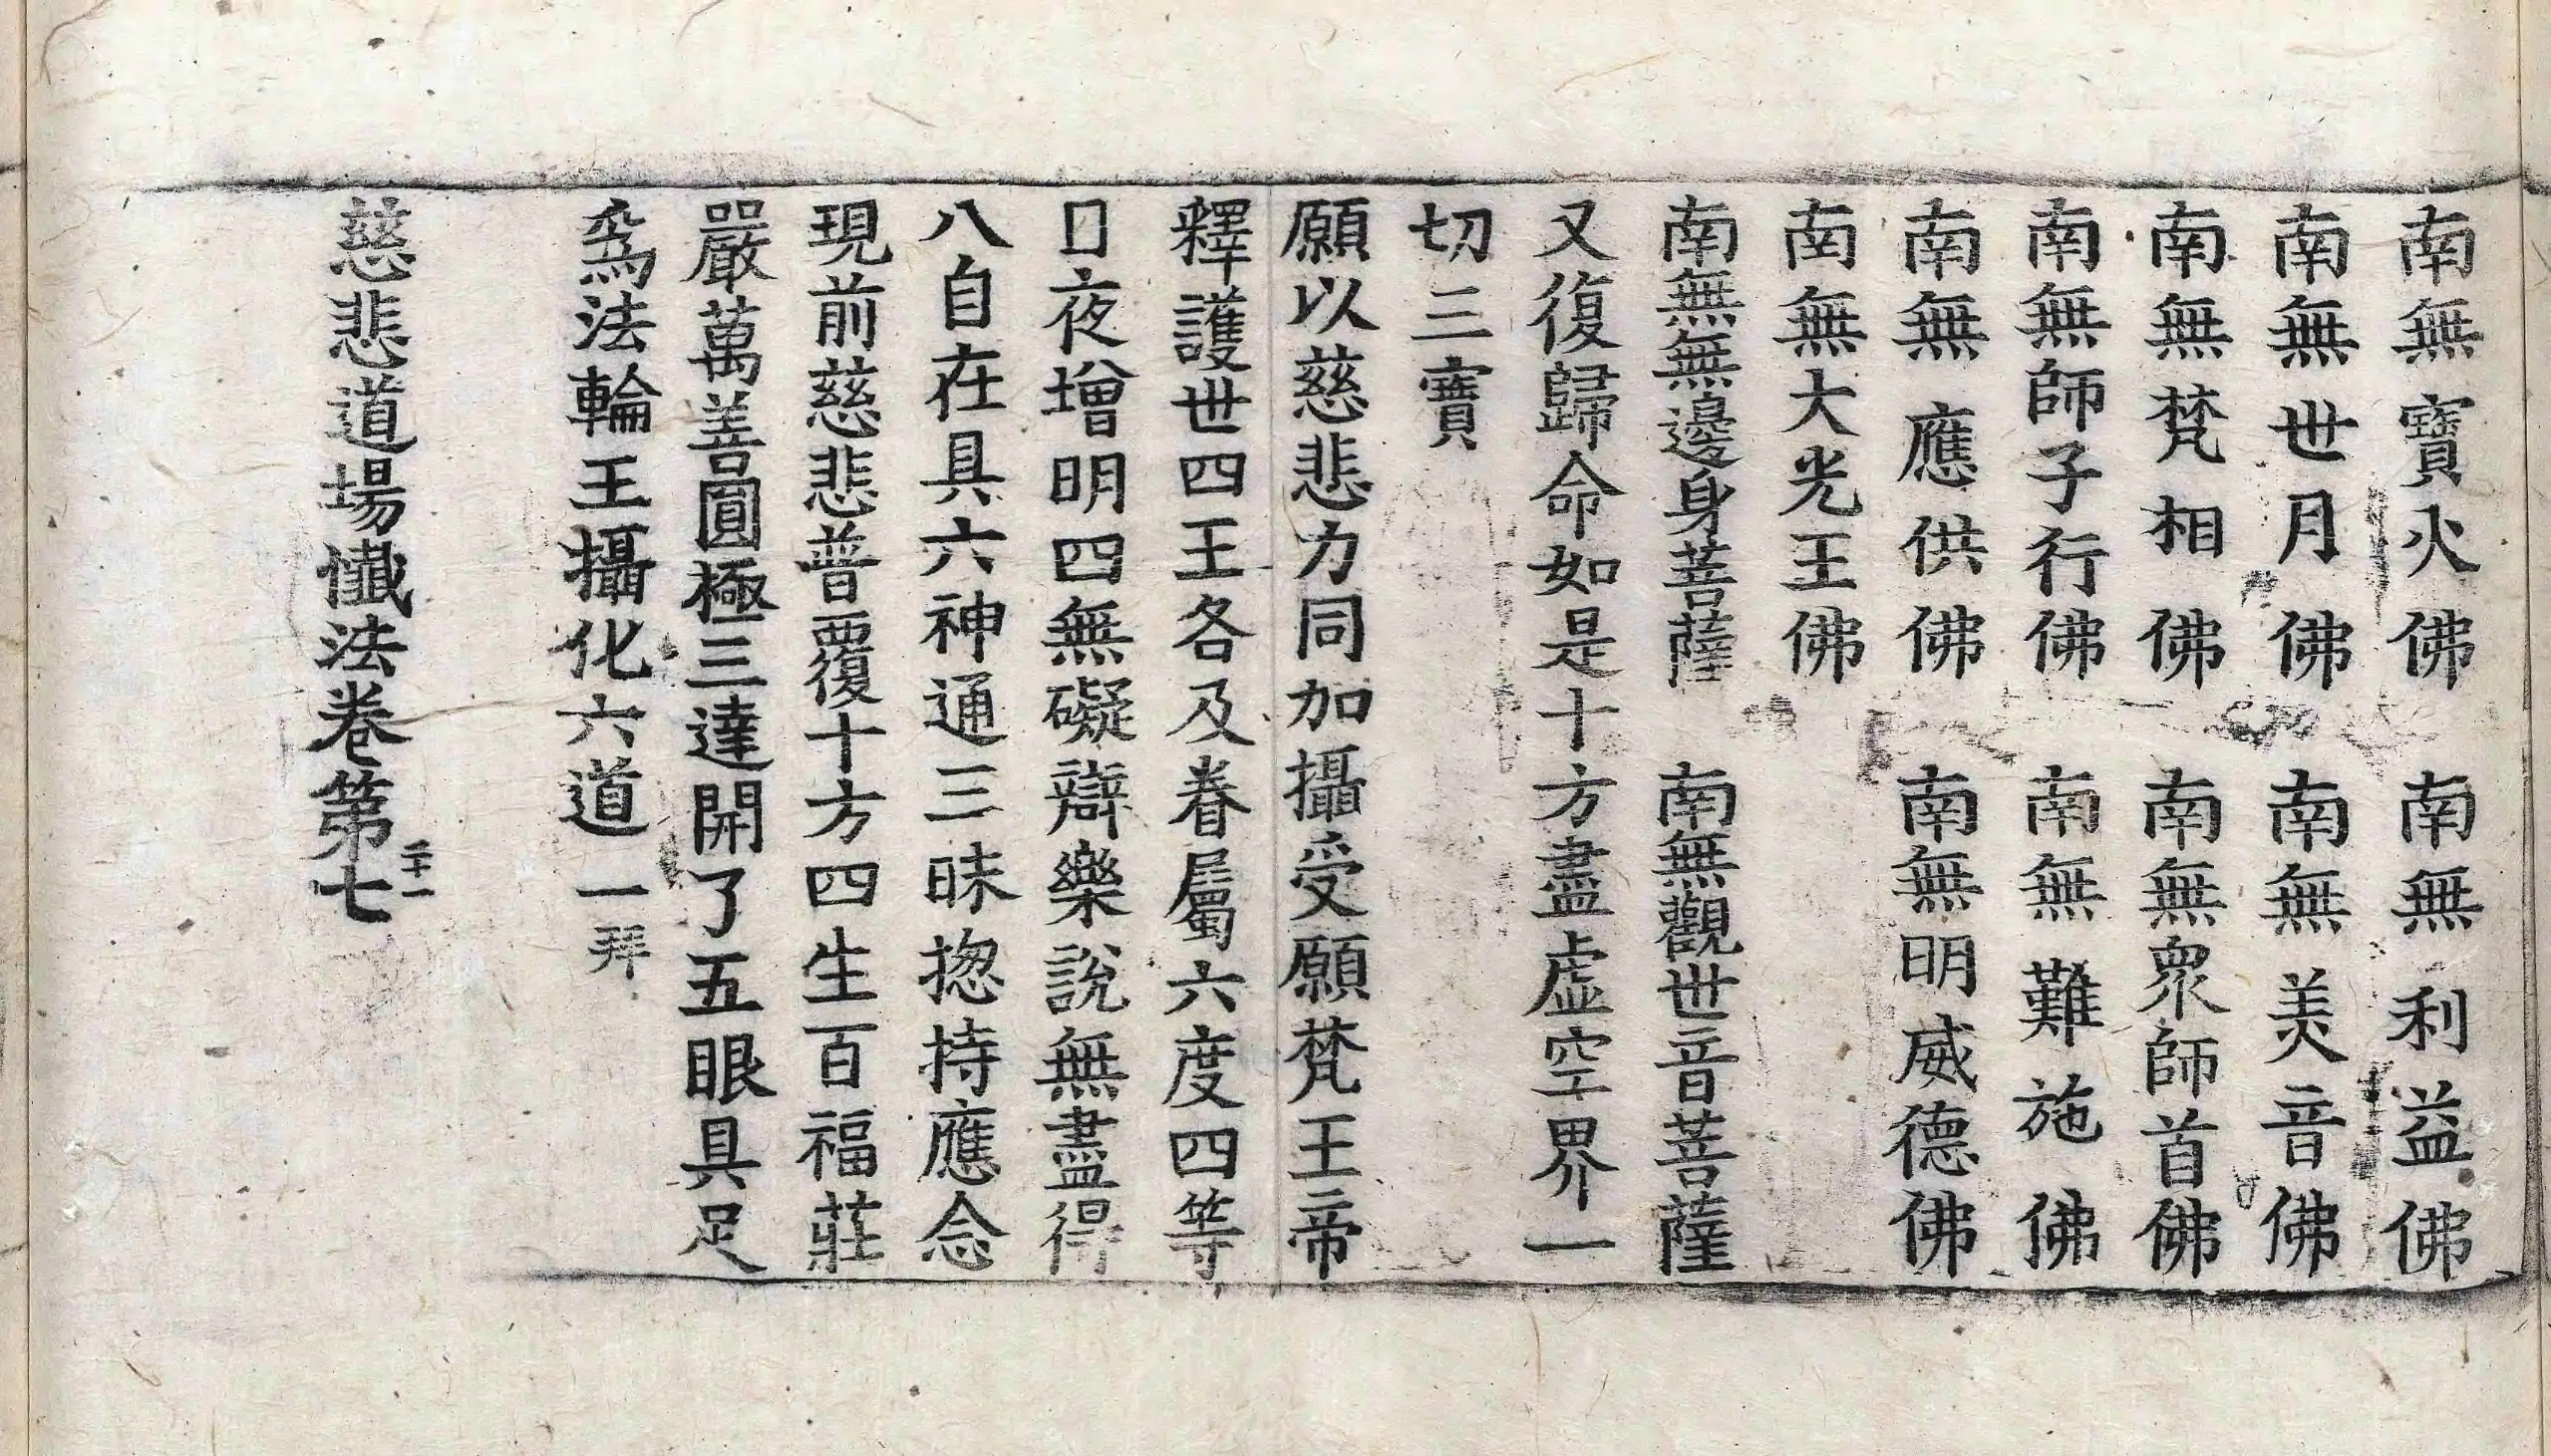 南無寶火佛　南無利益佛
南無世月佛　南無美音佛
南無梵相佛　南無衆師首佛
南無師子行佛　南無難施佛
南無應供佛　南無明威德佛
南無大光王佛
南無無邊身菩薩　南無觀世音菩薩
又復歸命如是十方盡虛空界一
切三寶
願以慈悲力同加攝受願梵王帝
釋護世四王各及眷屬六度四等
日夜增明四無礙辯樂說無盡得
八自在具六神通三昧揔持應念
現前慈悲普覆十方四生百福莊
嚴萬善圓極三達開了五眼具足
爲法輪王攝化六道　一拜
慈悲道場懺法卷第七
二十一